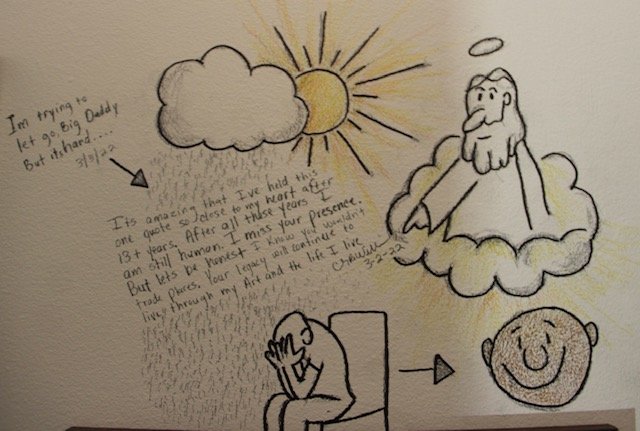 Im trying to
let go, Big Daddy
But its hard....
3/3/22
Its amazing that I've held this
one quote so close to my heart after
13+ years. After all those years I
am still human. I miss your presence.
But lets be honest I know you wouldn't
trade places. Your legacy will continue to
live through my Art and the life I live
3-2-22